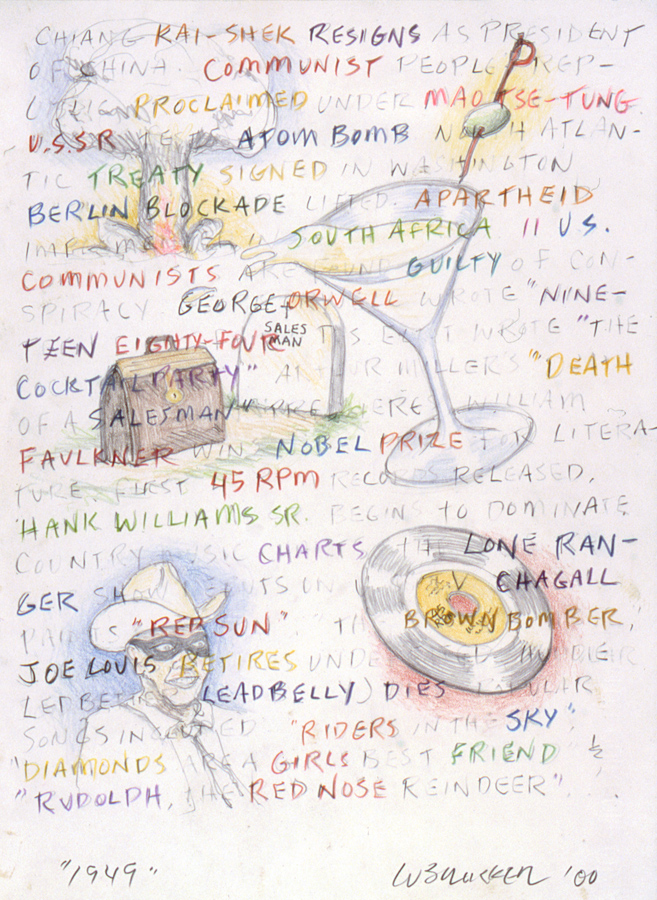 CHIANG KAI-SHEK RESIGNS AS PRESIDENT
OF CHINA. COMMUNIST PEOPLES REP-
UBLIC PROCLAIMED UNDER MAO TSE-TUNG
U.S.S.R TESTS ATOM BOMB NORTH ATLAN-
TIC TREATY SIGNED IN WASHINGTON
BERLIN BLOCKADE LIFTED. APARTHEID
IMPLEMENTED IN SOUTH AFRICA 11 U.S.
COMMUNISTS ARE FOUND GUILTY OF CON-
SPIRACY. GEORGE ORWELL WROTE "NINE-
TEEN EIGHTY-FOUR" T.S ELIOT WROTE "THE
SALES
MAN
COCKTAIL PARTY" ARTHUR MILLER'S "DEATH
OF A SALESMAN" PREMIERES. WILLIAM
FAULKNER WINS NOBEL PRIZE FOR LITERA-
TURE. FIRST 45 RPM RECORDS RELEASED.
HANK WILLIAMS SR. BEGINS TO DOMINATE
COUNTRY MUSIC CHARTS. THE LONE RAN-
GER SHOW DEBUTS ON TV CHAGALL
PAINTS "RED SUN". "THE BROWN BOMBER,"
JOE LOUIS RETIRES UNDEFEATED. HUDDIE
LEDBETTER (LEADBELLY) DIES POPULAR
SONGS INCLUDED "RIDERS IN THE SKY",
"DIAMONDS ARE A GIRLS BEST FRIEND" &
"RUDOLPH, THE RED NOSE REINDEER".
"1949"
'00